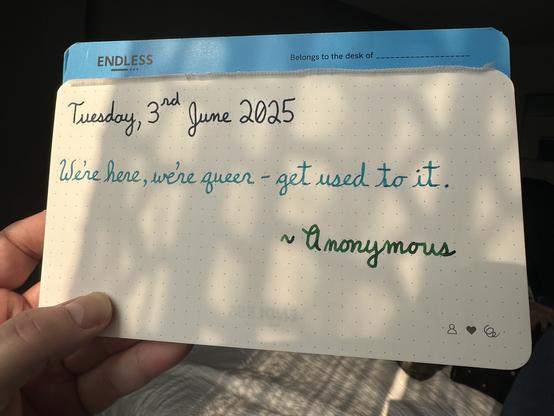 ENDLESS
Belongs to the desk of
Tuesday, 3rd June 2025
We're here, we're queer - get used to it.
~ Anonymous